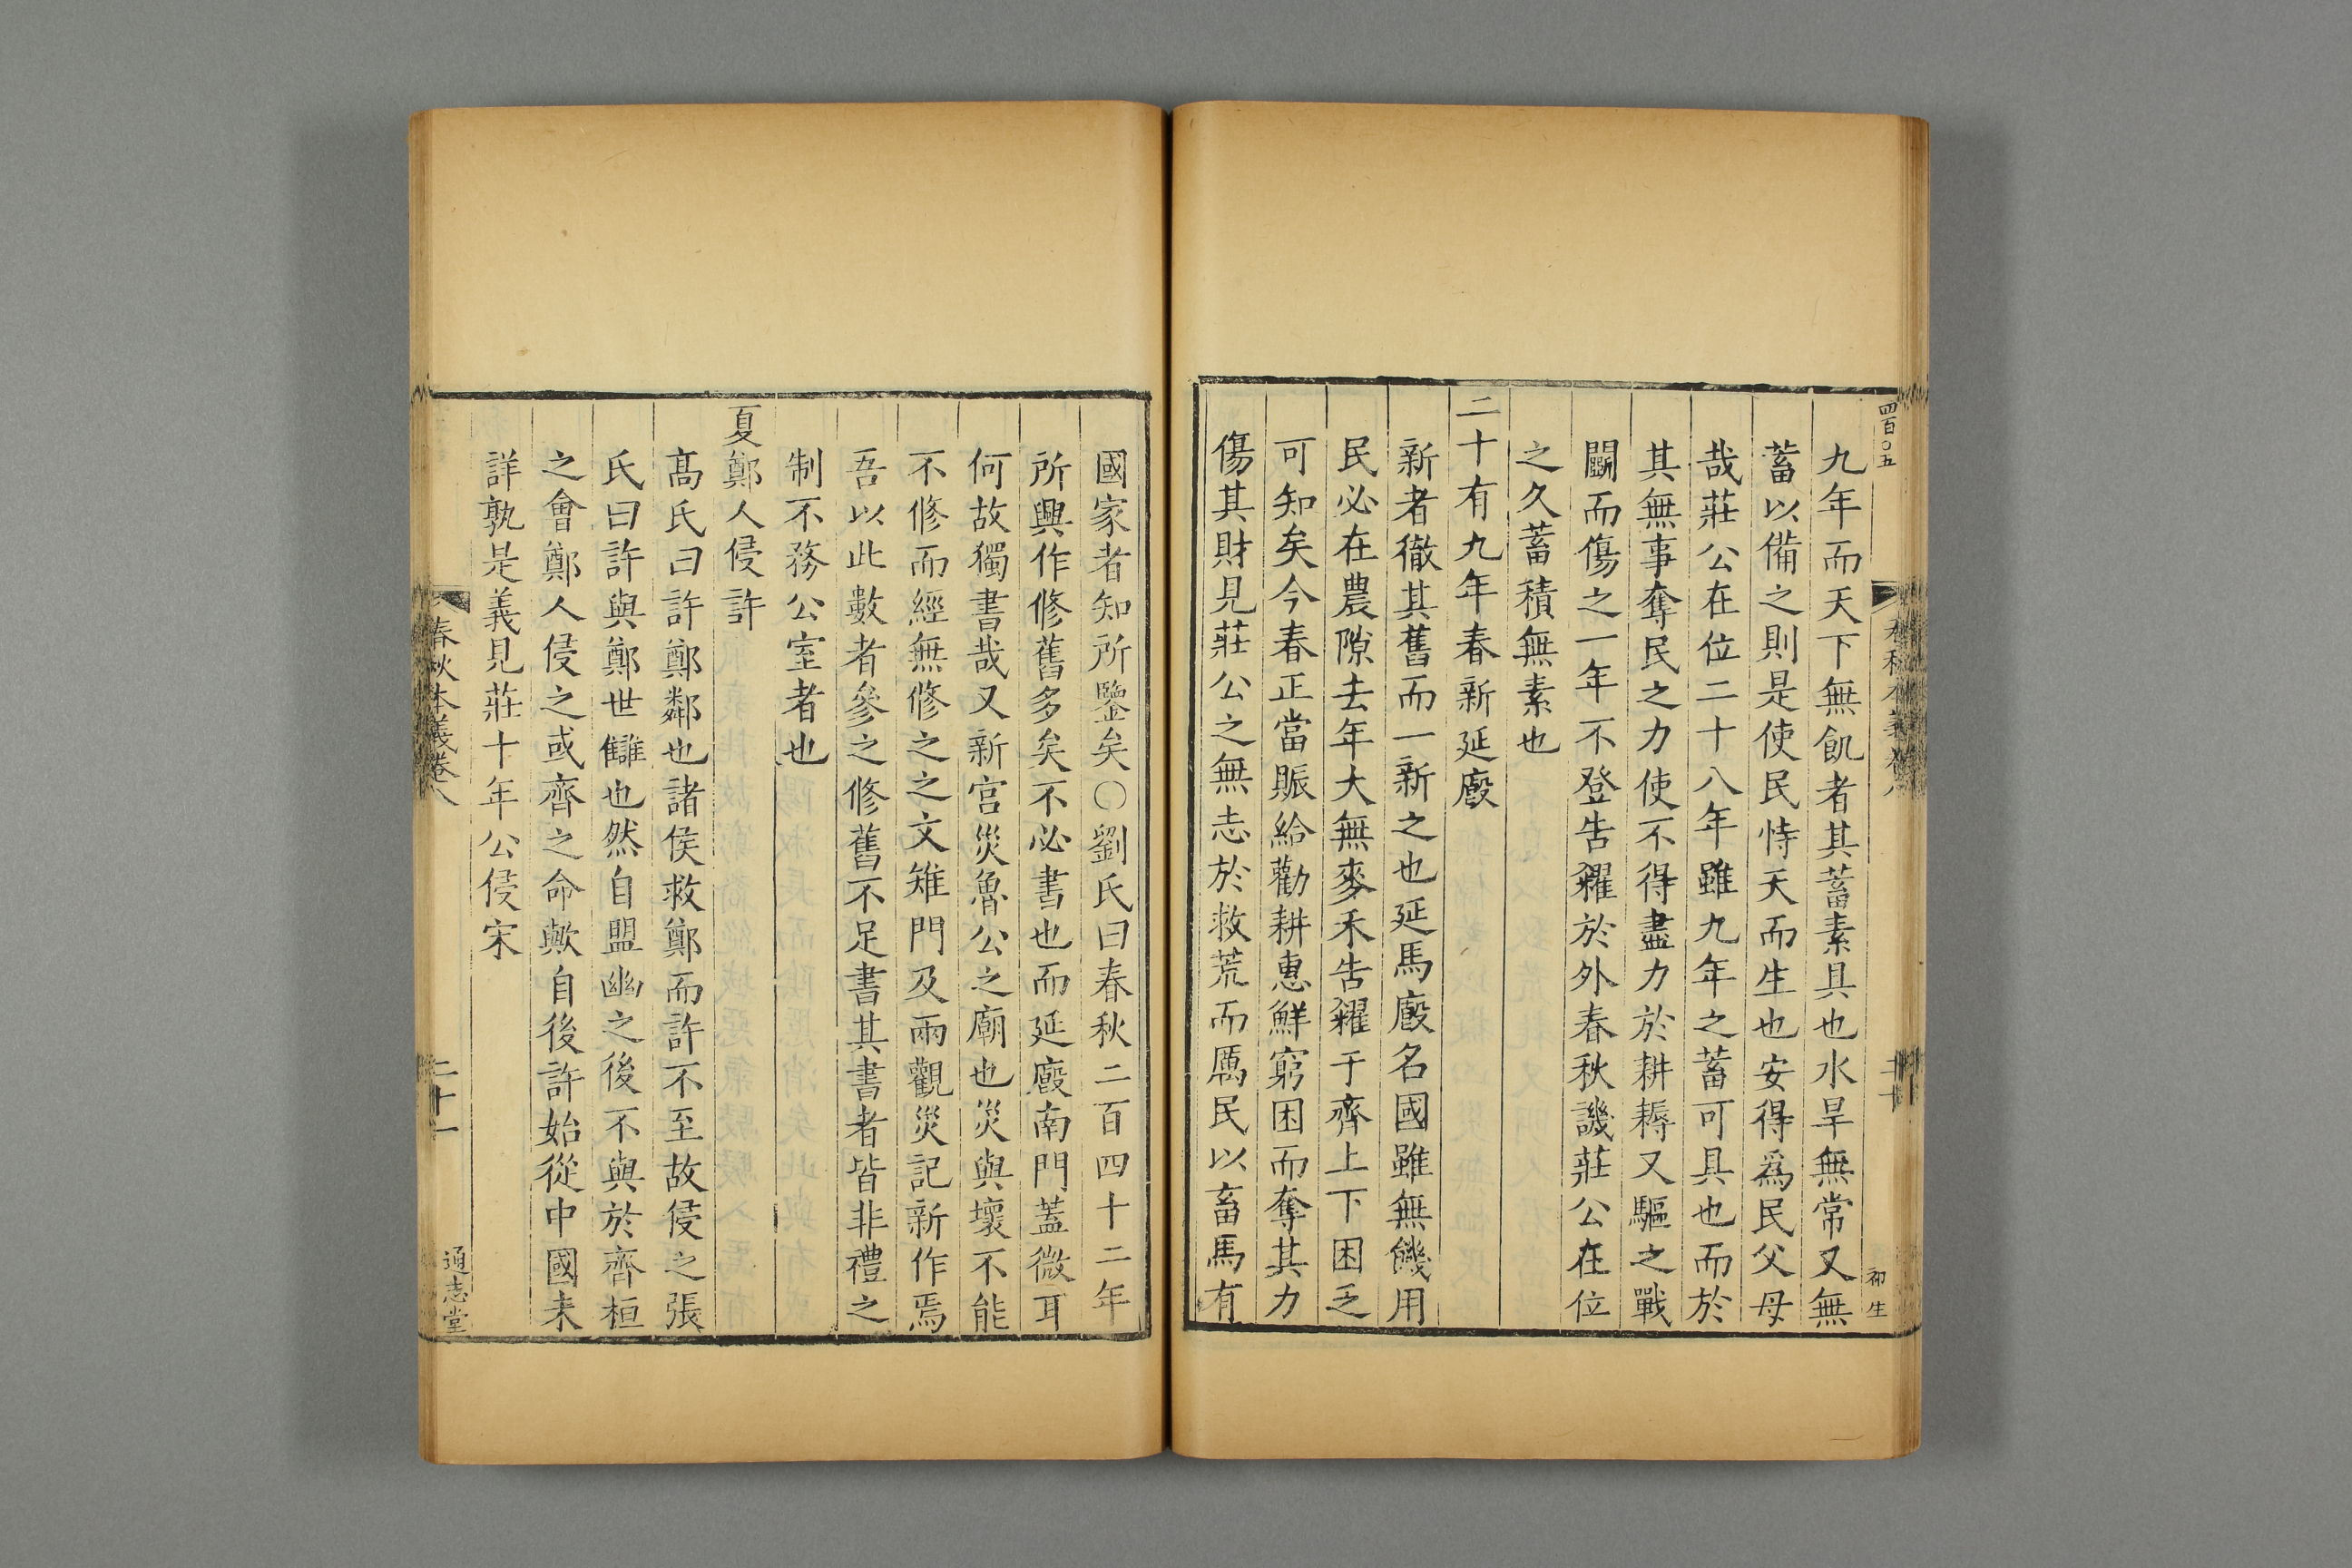 四百〇五
春秋本義卷八
二十
初生
九年而天下無飢者其蓄素具也水旱無常又無
蓄以備之則是使民恃天而生也安得爲民父母
哉莊公在位二十八年雖九年之蓄可具也而於
其無事奪民之力使不得盡力於耕耨又驅之戰
鬭而傷之一年不登告糴於外春秋譏莊公在位
之久蓄積無素也
二十有九年春新延廄
新者徹其舊而一新之也延馬廄名國雖無饑用
民必在農隙去年大無麥禾告糴于齊上下困乏
可知矣今春正當賑給勸耕惠鮮窮困而奪其力
傷其財見莊公之無志於救荒而厲民以畜馬有
國家者知所鑒矣〇劉氏曰春秋二百四十二年
所興作修舊多矣不必書也而延廄南門蓋微耳
何故獨書哉又新宫災魯公之廟也災與壞不能
不修而經無修之之文雉門及兩觀災記新作焉
吾以此數者參之修舊不足書其書者皆非禮之
制不務公室者也
夏鄭人侵許
髙氏曰許鄭鄰也諸侯救鄭而許不至故侵之張
氏曰許與鄭世讎也然自盟幽之後不與於齊桓
之會鄭人侵之或齊之命歟自後許始從中國未
詳孰是義見莊十年公侵宋
春秋本義卷八
二十一
通志堂